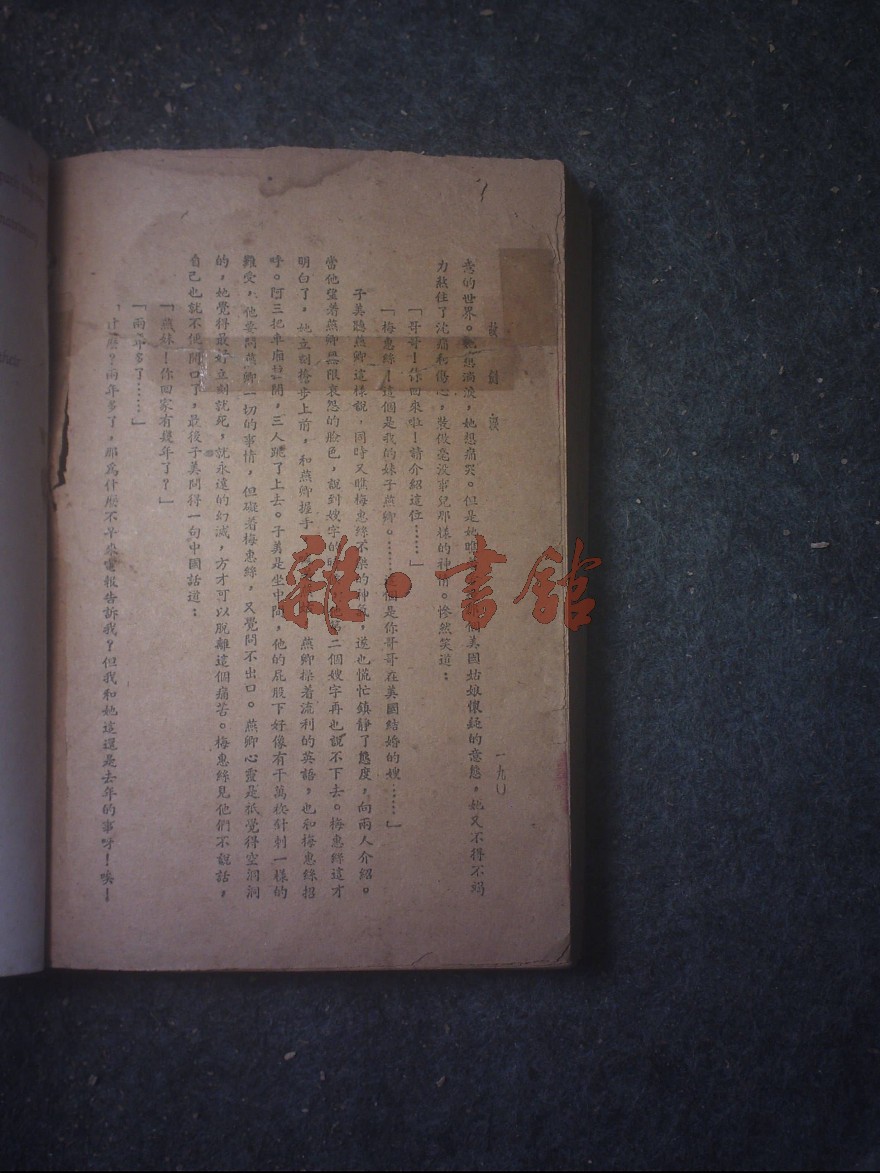 一九〇
意的世界。她想淌淚，她想痛哭。但是她瞧 個美國姑娘懷疑的意態，她又不得不竭
力熬住了沈痛和傷心，裝做毫沒事兒那樣的神情。慘然笑道：
「哥哥！你回來啦！請介紹這位……」
「梅惠絲！這個是我的妹子燕卿。…… 個是你哥哥在美國結婚的嫂……」
子美聽燕卿這樣說，同時又瞧梅惠絲不樂的神氣，遂也慌忙鎮靜了態度，向兩人介紹。
當他望着燕卿無限哀怨的臉色，說到嫂字的 第二個嫂字再也說不下去。梅惠絲這才
明白了，她立刻搶步上前，和燕卿握手 燕卿操着流利的英語，也和梅惠絲招
呼。阿三把車廂拉開，三人跳了上去。子美是坐中間，他的屁股下好像有千萬枚針刺一樣的
難受，他要問燕卿一切的事情，但礙着梅惠絲，又覺問不出口。燕卿心靈是祇覺得空洞洞
的，她覺得最好立刻就死，就永遠的幻滅，方才可以脫離這個痛苦。梅惠絲見他們不說話，
自己也就不便開口了，最後子美問得一句中國話道：
「燕妹！你回家有幾年了？」
「兩年多了……」
「什麼？兩年多了，那爲什麼不早來電報告訴我？但我和她這還是去年的事呀！唉！
雜·書館